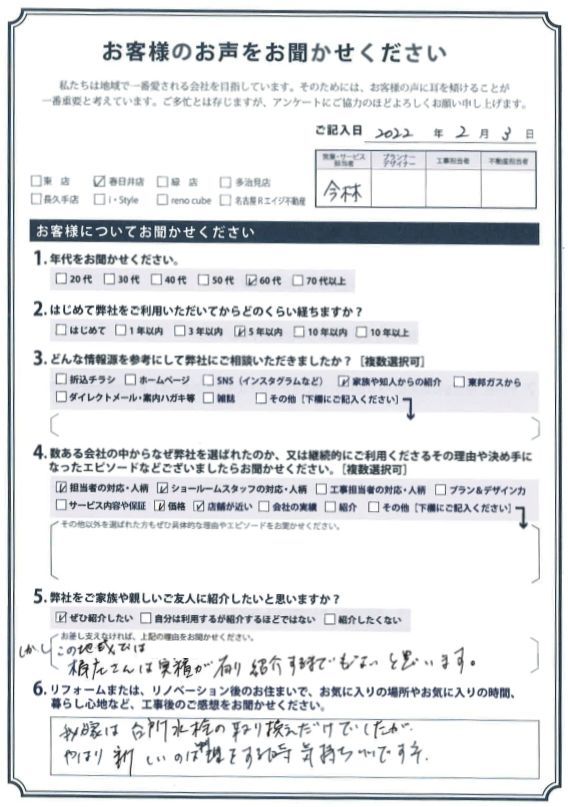 お客様のお声をお聞かせください
私たちは地域で一番愛される会社を目指しています。そのためには、お客様の声に耳を傾けることが
一番重要と考えています。ご多忙とは存じますが、アンケートにご協力のほどよろしくお願い申し上げます。
ご記入日 2022 年 2 月 3 日
営業・サービス担当者 プランナーデザイナー 工事担当者 不動産担当者
今林
□東 店 ☑春日井店 □緑 店 □多治見店
□長久手店 □i・Style □reno cube □名古屋Rエイジ不動産
お客様についてお聞かせください
1. 年代をお聞かせください。
□20代 □30代 □40代 □50代 ☑60代 □70代以上
2. はじめて弊社をご利用いただいてからどのくらい経ちますか?
□はじめて □1年以内 □3年以内 ☑5年以内 □10年以内 □10年以上
3. どんな情報源を参考にして弊社にご相談いただきましたか?[複数選択可]
□折込チラシ □ホームページ □SNS(インスタグラムなど) ☑家族や知人からの紹介 □東邦ガスから
□ダイレクトメール・案内ハガキ等 □雑誌 □その他[下欄にご記入ください]
4. 数ある会社の中からなぜ弊社を選ばれたのか、又は継続的にご利用くださるその理由や決め手に
なったエピソードなどございましたらお聞かせください。[複数選択可]
☑担当者の対応・人柄 ☑ショールームスタッフの対応・人柄 □工事担当者の対応・人柄 □プラン&デザイン力
□サービス内容や保証 ☑価格 ☑店舗が近い □会社の実績 □紹介 □その他[下欄にご記入ください]
その他以外を選ばれた方もぜひ具体的な理由やエピソードをお聞かせください。
5. 弊社をご家族や親しいご友人に紹介したいと思いますか?
☑ぜひ紹介したい □自分は利用するが紹介するほどではない □紹介したくない
お差し支えなければ、上記の理由をお聞かせください。
しかしこの地域では
さんは実績が有り紹介するまでもないと思います。
6. リフォームまたは、リノベーション後のお住まいで、お気に入りの場所やお気に入りの時間、
暮らし心地など、工事後のご感想をお聞かせください。
我家は台所水栓の取り換えだけでしたが、
やはり新しいのは料理をする時気持ちいいですネ。